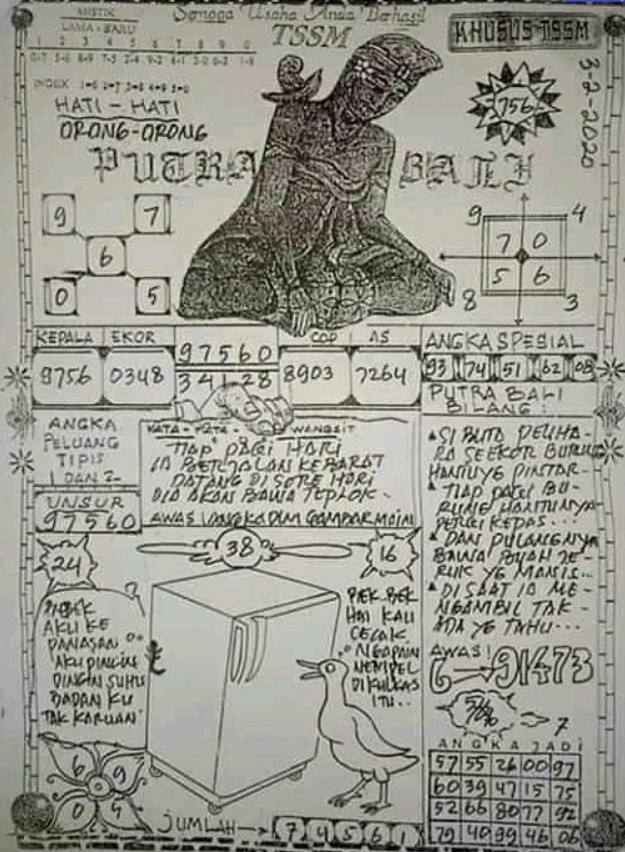 MISTIK
LAMA - BARU
1 2 3 4 5 6 7 8 9 0
Semoga Usaha Anda Berhasil
TSSM
KHUSUS TSSM
3-2-2020
756
INDEX 1=6 2=7 3=8 4=9 5=0
HATI - HATI
ORONG-ORONG
PUTRA BALI
9 7
6
0 5
9 4
7 0
5 6
8 3
KEPALA EKOR
9756 0348
97560
34128
COP AS
8903 7264
ANGKA SPESIAL
93 74 51 62 08
PUTRA BALI
BILANG :
ANGKA
PELUANG
TIPIS
1 DAN 2
UNSUR
97560
KATA - KATA - WANGSIT
TIAP PAGI HARI
IA BERJALAN KE BARAT
DATANG DI SORE HARI
DIA AKAN BAWA TEPLOK -
AWAS GAMBAR MAIN
SI BUTA PELIHA-
RA SEEKOR BURUNG
HANTU YG PINTAR -
TIAP PAGI BU-
RUNG HANTUNYA
PERGI KEPAS...
DAN PULANGNYA
BAWA BUAH JE-
RUK YG MANIS...
DI SAAT IA ME-
NGAMBIL TAK -
ADA YG TAHU...
AWAS!
91473
7
24
38
16
AKU KE
PANASAN
AKU PINGIN
DINGIN SUHU
BADAN KU
TAK KARUAN
BEK BEK
HAI KAU
CECAK
NGAPAIN
NEMPEL
DI KULKAS
ITU..
6 9
0 4
JUMLAH → 7 4 5 6 1
ANGKA JADI
57 55 26 00 97
60 39 47 15 75
52 66 80 77 92
79 40 99 46 06